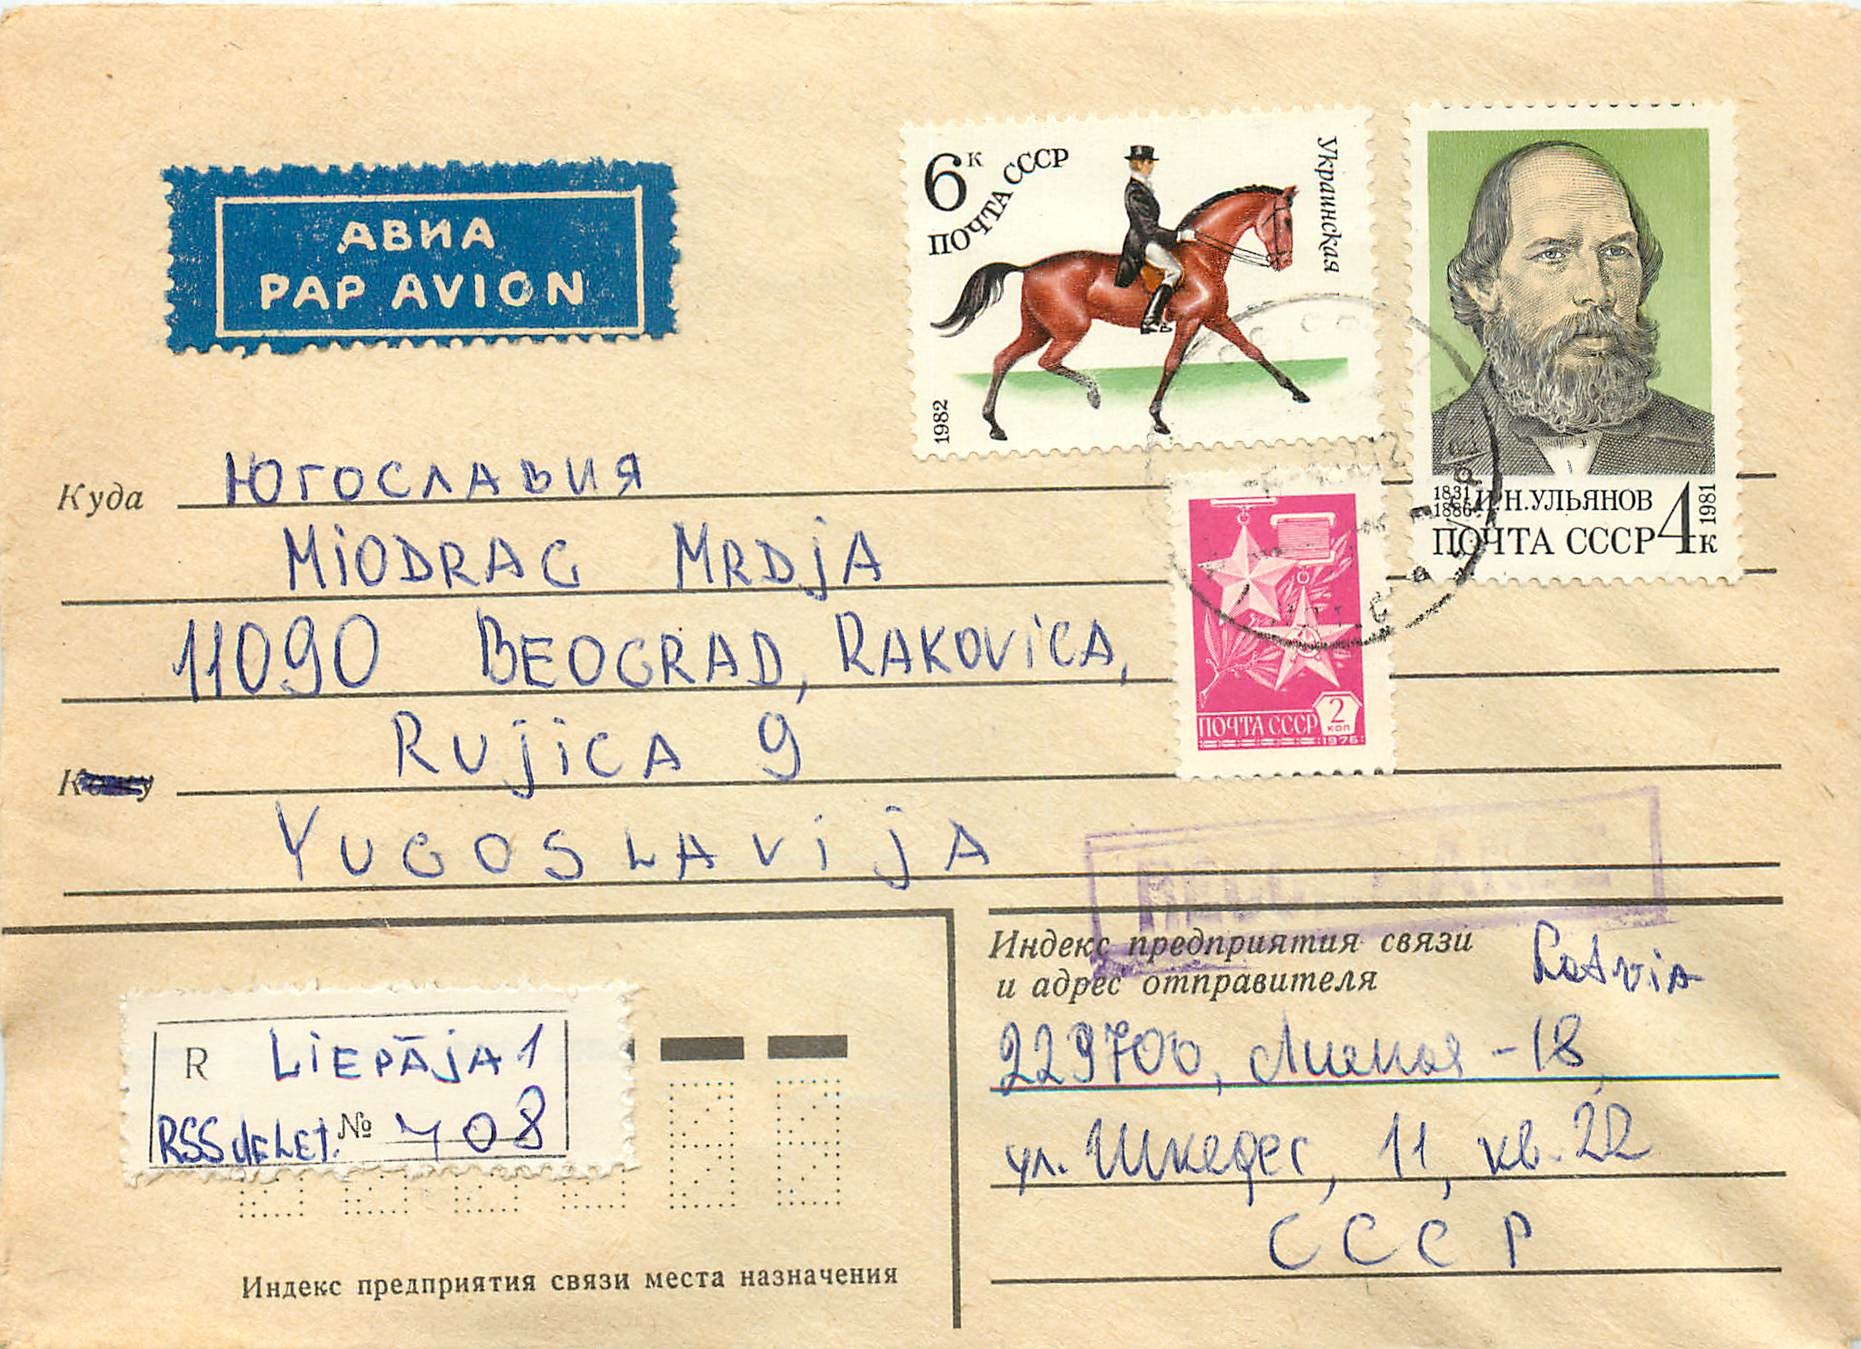 АВИА
PAR AVION
6к
ПОЧТА СССР
Украинская
1982
1831
1886
И.Н.УЛЬЯНОВ
1981
ПОЧТА СССР 4к
ПОЧТА СССР 2 коп
1976
Куда ЮГОСЛАВИЯ
MiODRAG MRDjA
11090 BEOGRAD, RAKOViCA,
RUjiCA 9
YUGOSLAViJA
Индекс предприятия связи
и адрес отправителя
Latvia
229700, Лиепая - 18,
ул. Шкедес, 11, кв. 22
СССР
R LiEPĀJA 1
RSS de Let. № 408
Индекс предприятия связи места назначения